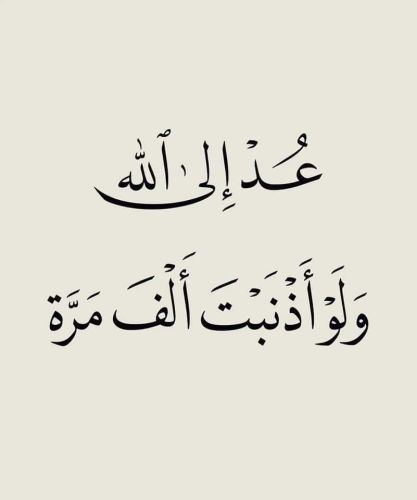 عُدْ إِلىٰ ٱلله
وَلَوْ أَذْنَبْتَ أَلْفَ مَرَّة